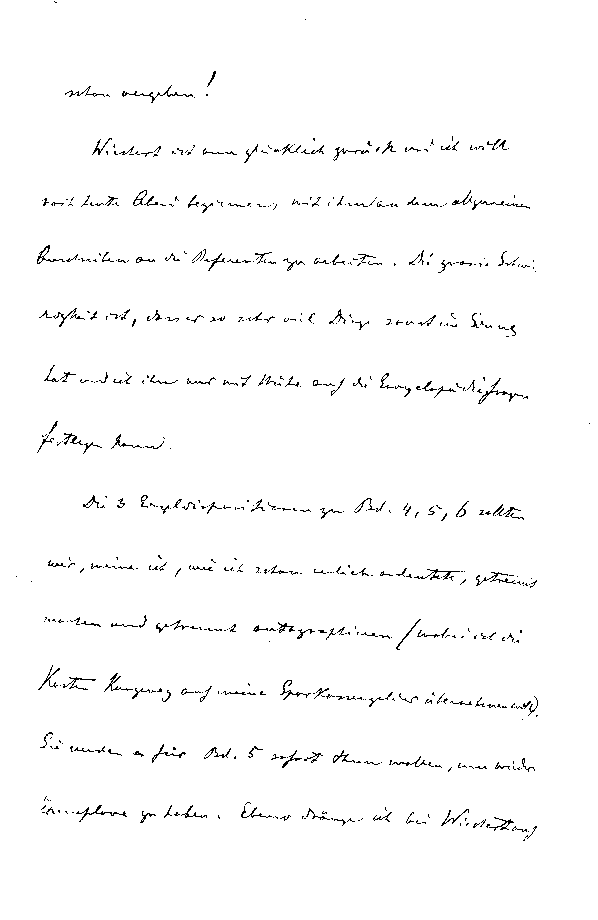 schon vergeben!
Wiechert ist nun glücklich zurück und ich will
seit heute Abend beginnen, mit ihm an dem allgemeinen
Rundschreiben an die Referenten zu arbeiten. Die grosse Schwie-
rigkeit ist, dass er so sehr viel Dinge sonst im Sinne
hat und ich ihn nur mit Mühe auf die Encyclopädiefragen
festlegen kann.
Die 3 Einzeldispositionen zu Bd. 4, 5, 6 sollten
wir, meine ich, wie ich schon neulich andeutete, getrennt
machen und getrennt autographieren (wobei ich die
Kosten kurzweg auf meine Sparkassengelder übernehmen will).
Sie werden es für Bd. 5 sofort thun wollen, um wieder
Exemplare zu haben. Ebenso dränge ich bei Wiechert auf